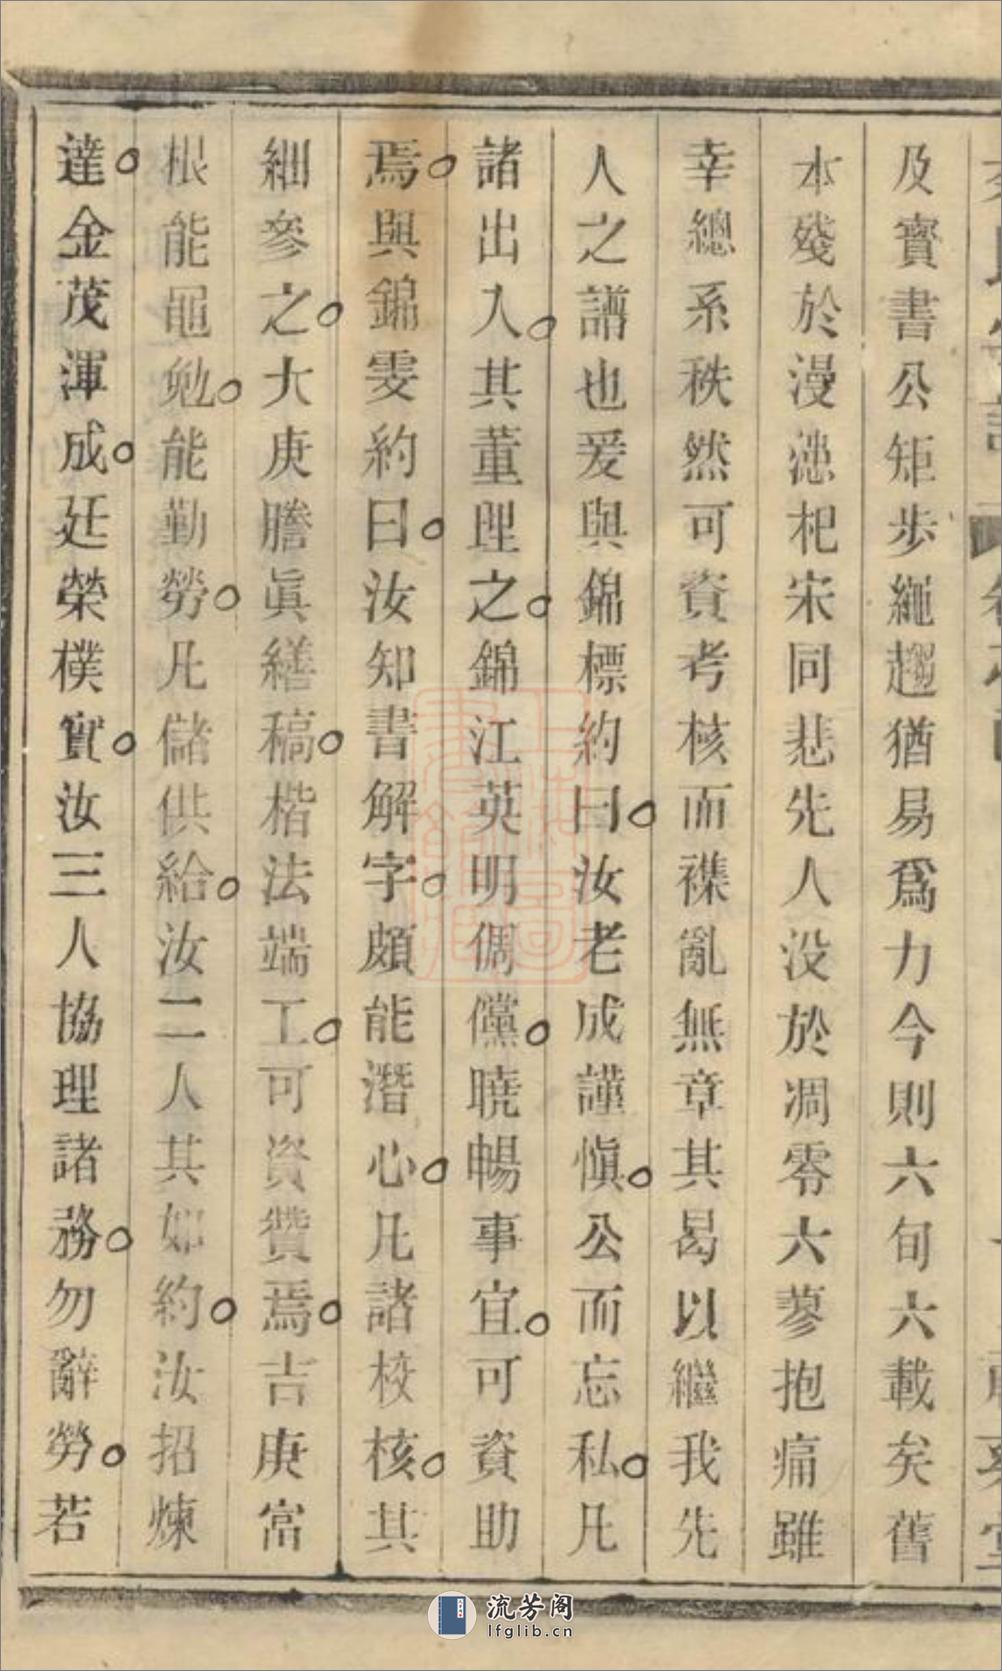 及寶書公矩步繩趨猶易爲力今則六旬六載矣舊
本殘於漫漶杞宋同悲先人没於凋零六蓼抱痛雖
幸總系秩然可資考核而襍亂無章其曷以繼我先
人之譜也爰與錦標約曰汝老成謹慎公而忘私凡
諸出入其董理之錦江英明倜儻曉暢事宜可資助
焉與錦雯約曰汝知書解字頗能潛心凡諸校核其
細參之大庚謄眞繕稿楷法端工可資贊焉吉庚富
根能黽勉能勤勞凡儲供給汝二人其如約汝招煉
達金茂渾成廷榮樸實汝三人協理諸務勿辭勞若
流芳阁
lfglib.cn